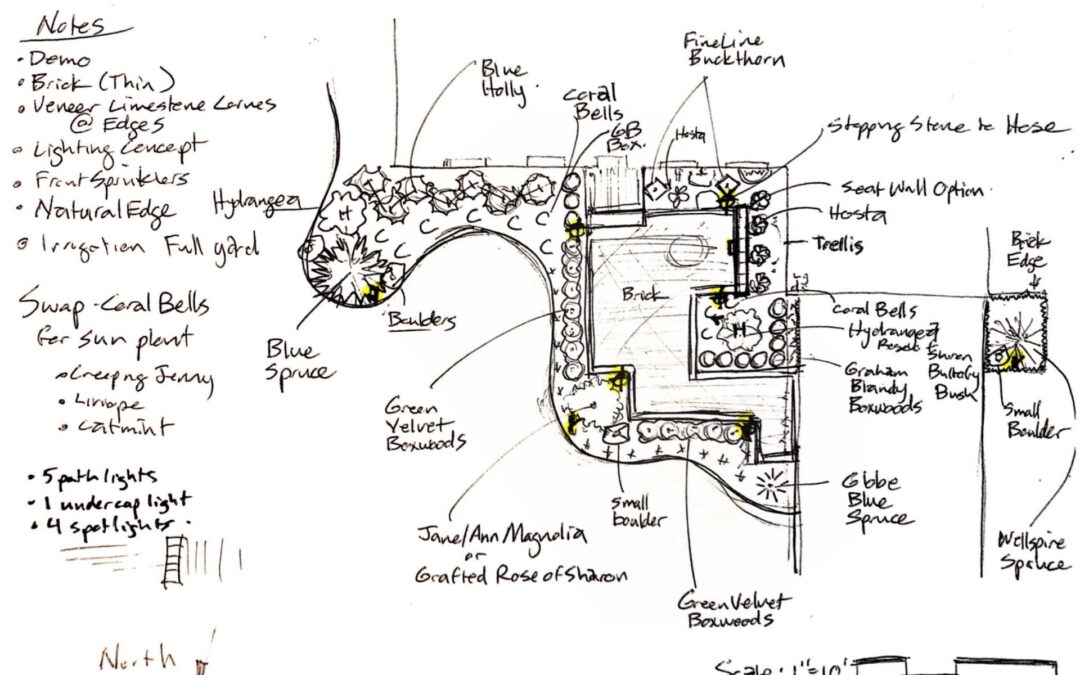 Notes
• Demo
• Brick (Thin)
• Veneer Limestone
@ Edges
• Lighting Concept
• Front Sprinklers
• Natural Edge
• Irrigation Full yard
Swap - Coral Bells
for sun plant
• Creeping Jenny
• Liriope
• Catmint
• 5 path lights
• 1 undercap light
• 4 spotlights
North
Hydrangea
H
Blue
Holly
Coral
Bells
GB
Box.
FineLine
Buckthorn
Hosta
Stepping Stone to Hose
Seat Wall Option
Hosta
Trellis
Brick
Edge
Brick
Boulders
Blue
Spruce
Green
Velvet
Boxwoods
Coral Bells
Hydrangea
H
Graham
Blandy
Boxwoods
Small
Boulder
Small
boulder
Globe
Blue
Spruce
Jane/Ann Magnolia
or
Grafted Rose of Sharon
Green Velvet
Boxwoods
Spruce
Scale: 1"=10'